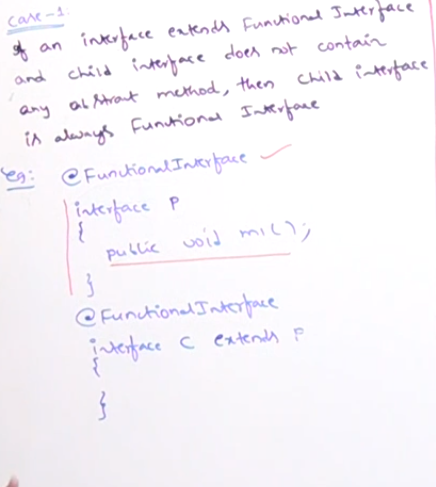 Case-1:
If an interface extends Functional Interface
and child interface does not contain
any abstract method, then child interface
is always Functional Interface
Eg: @FunctionalInterface
interface P
{
public void m1();
}
@FunctionalInterface
interface C extends P
{
}